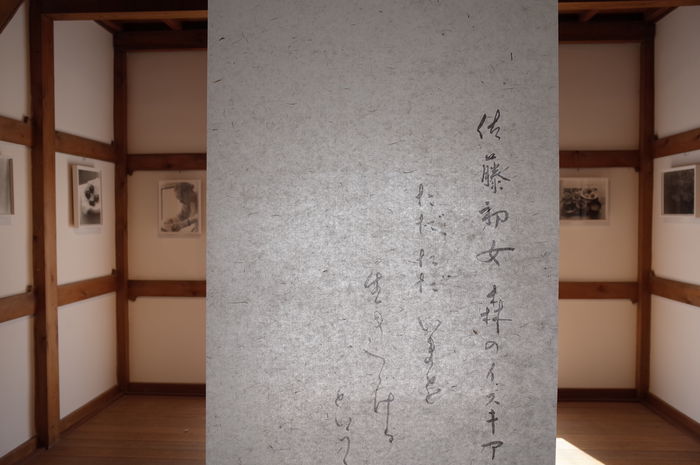 佐藤初女 森のイスキア
ただただ いまを
生きつづける
という